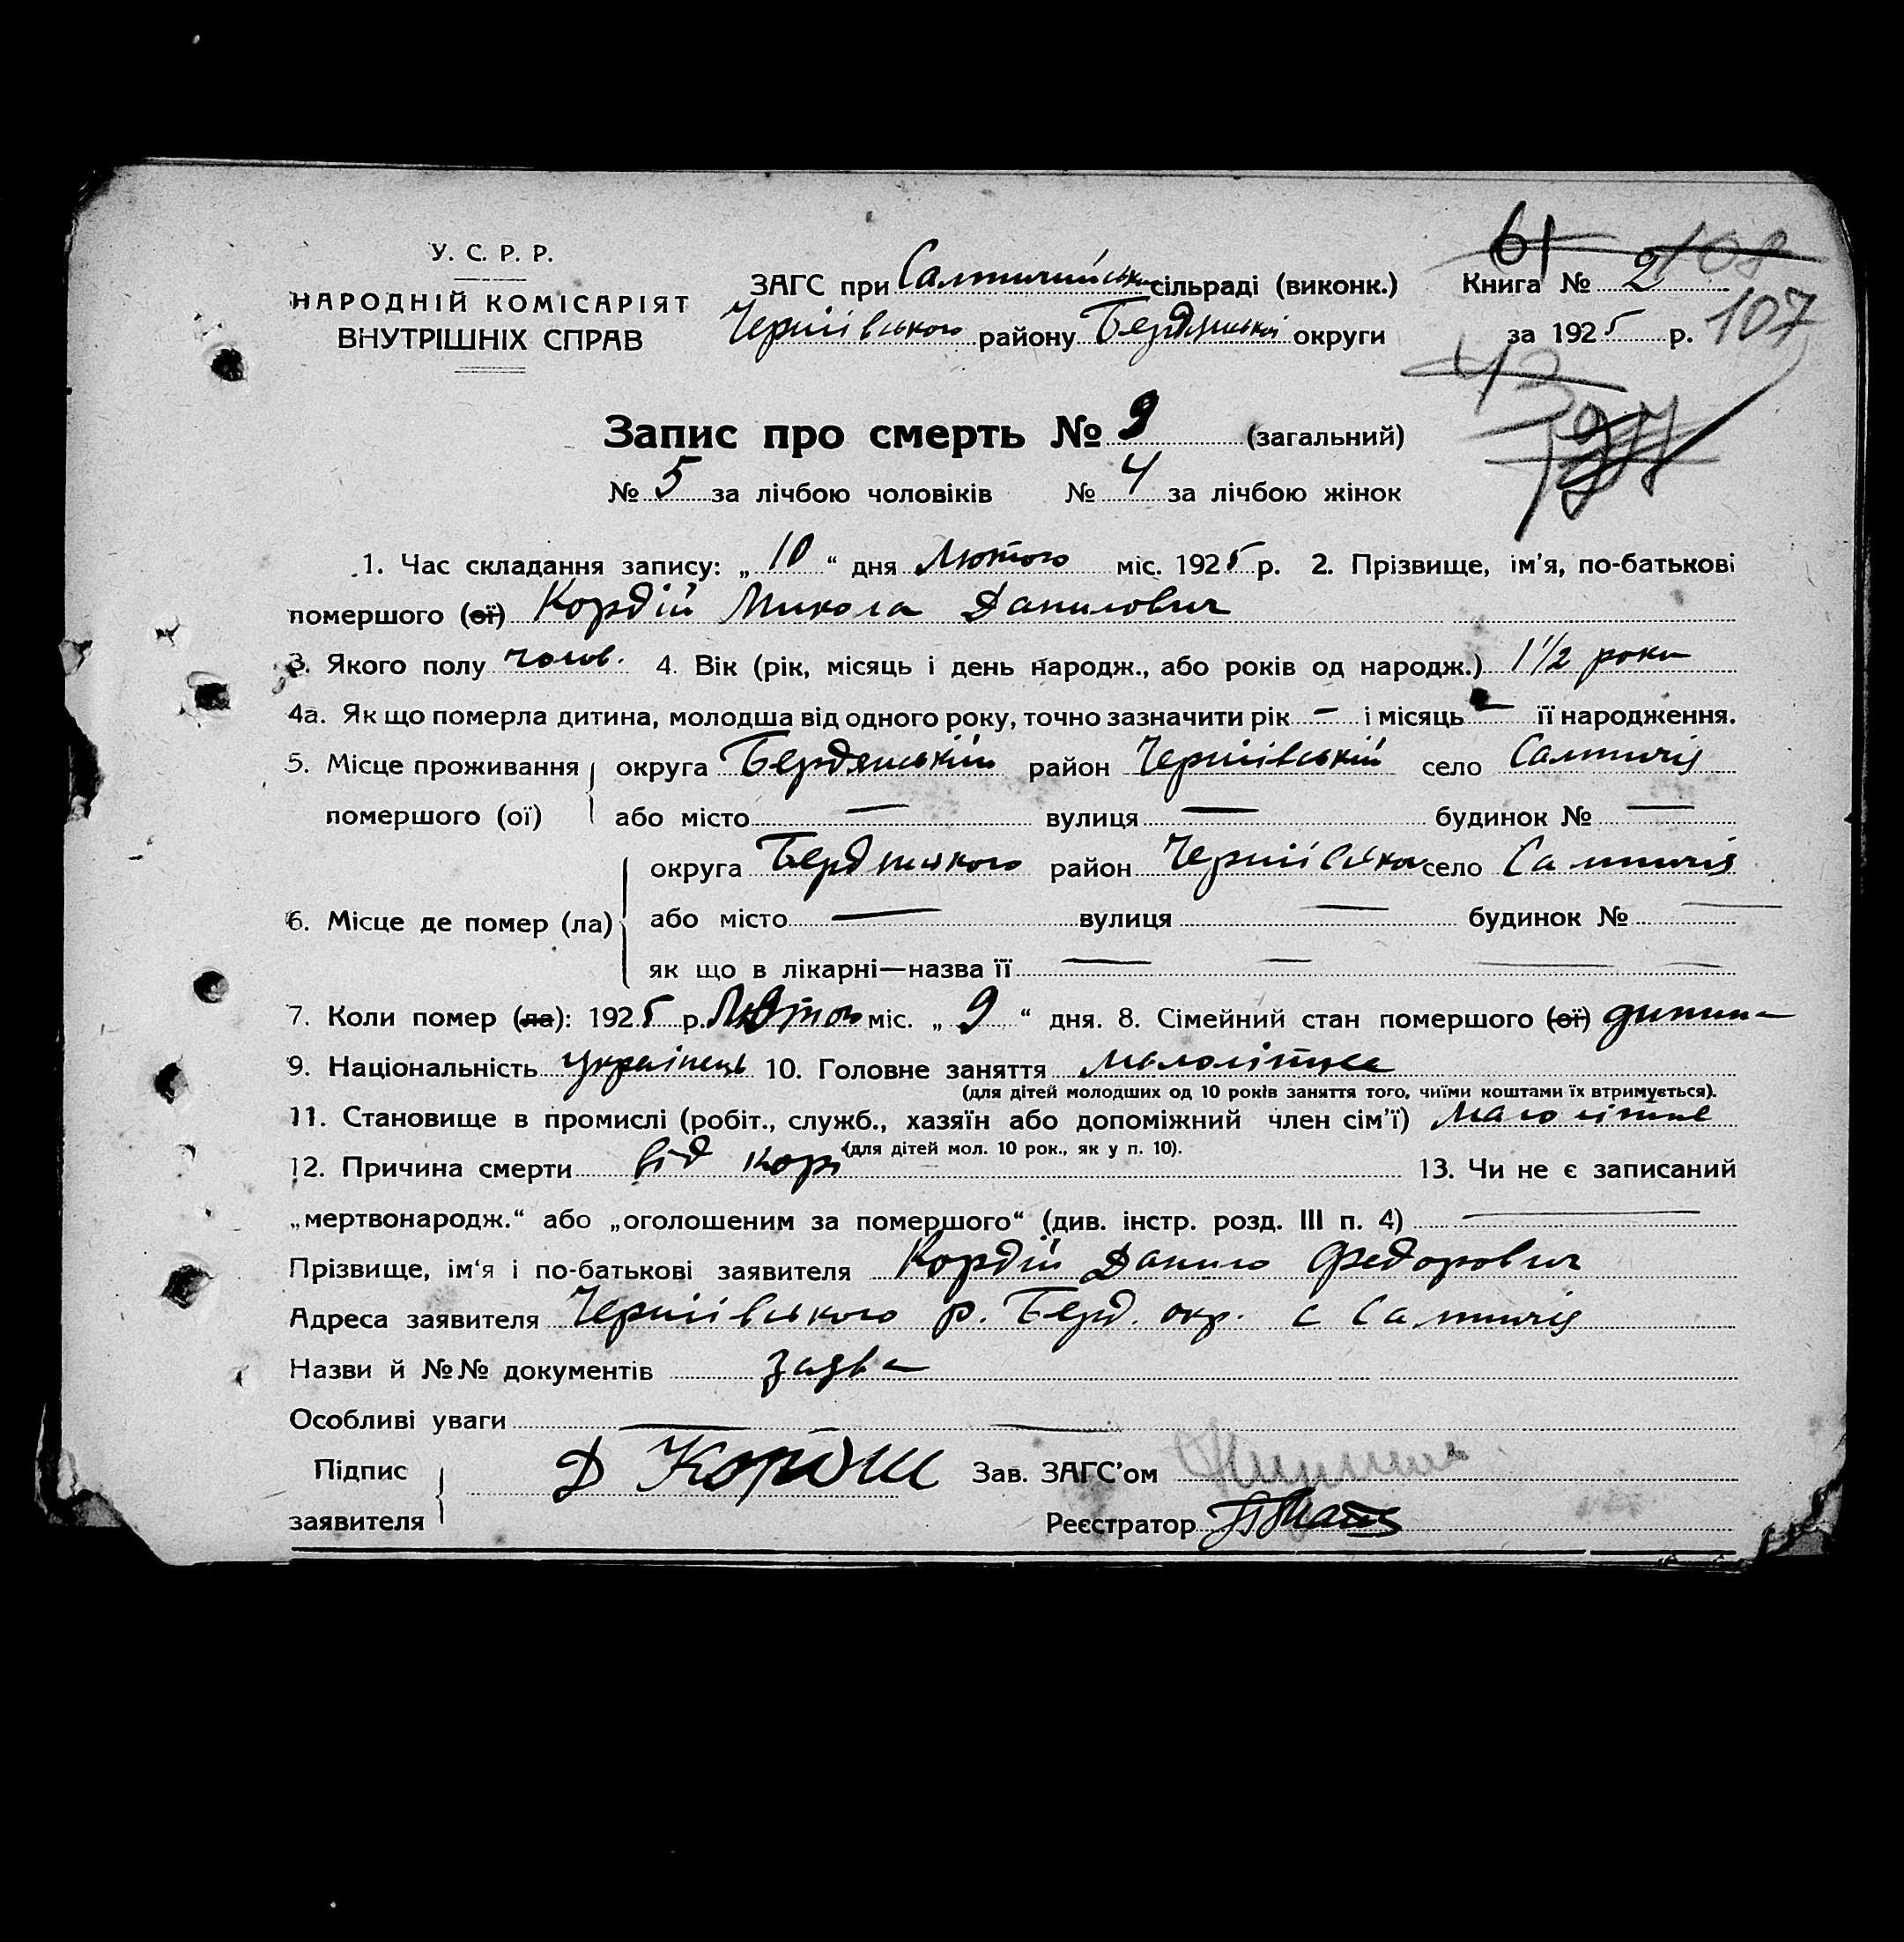 У. С. Р. Р.
НАРОДНІЙ КОМІСАРІЯТ
ВНУТРІШНІХ СПРАВ
ЗАГС при Салтичийськ сільраді (виконк.)
Чернігівського району Бердянської округи
61 108
Книга № 2
за 1925 р. 107
43
Запис про смерть № 9 (загальний)
№ 5 за лічбою чоловіків № 4 за лічбою жінок
1. Час складання запису: „ 10 “ дня Лютого міс. 1925 р. 2. Прізвище, ім'я, по-батькові
помершого (ої) Кордій Микола Данилович
3. Якого полу чолов. 4. Вік (рік, місяць і день народж., або років од народж.) 1½ роки
4а. Як що померла дитина, молодша від одного року, точно зазначити рік – і місяць – її народження.
5. Місце проживання округа Бердянській район Чернігівській село Салтичія
помершого (ої) або місто — вулиця — будинок № —
округа Бердянського район Чернігівсько село Салтичія
6. Місце де помер (ла) або місто — вулиця — будинок № —
як що в лікарні—назва її — — — —
7. Коли помер (ла): 1925 р. Лютого міс. „ 9 “ дня. 8. Сімейний стан помершого (ої) дитина
9. Національність українець 10. Головне заняття малолітнє
(для дітей молодших од 10 років заняття того, чиїми коштами їх втримується).
11. Становище в промислі (робіт., служб., хазяїн або допоміжний член сім'ї) малолітнє
(для дітей мол. 10 рок., як у п. 10).
12. Причина смерти від корі 13. Чи не є записаний
„мертвонародж.“ або „оголошеним за помершого“ (див. інстр. розд. III п. 4) —
Прізвище, ім'я і по-батькові заявителя Кордій Данило Федорович
Адреса заявителя Чернігівського р. Берд. окр. с Салтичія
Назви й №№ документів заява
Особливі уваги — —
Підпис
заявителя Д Кордій
Зав. ЗАГС'ом
Реєстратор